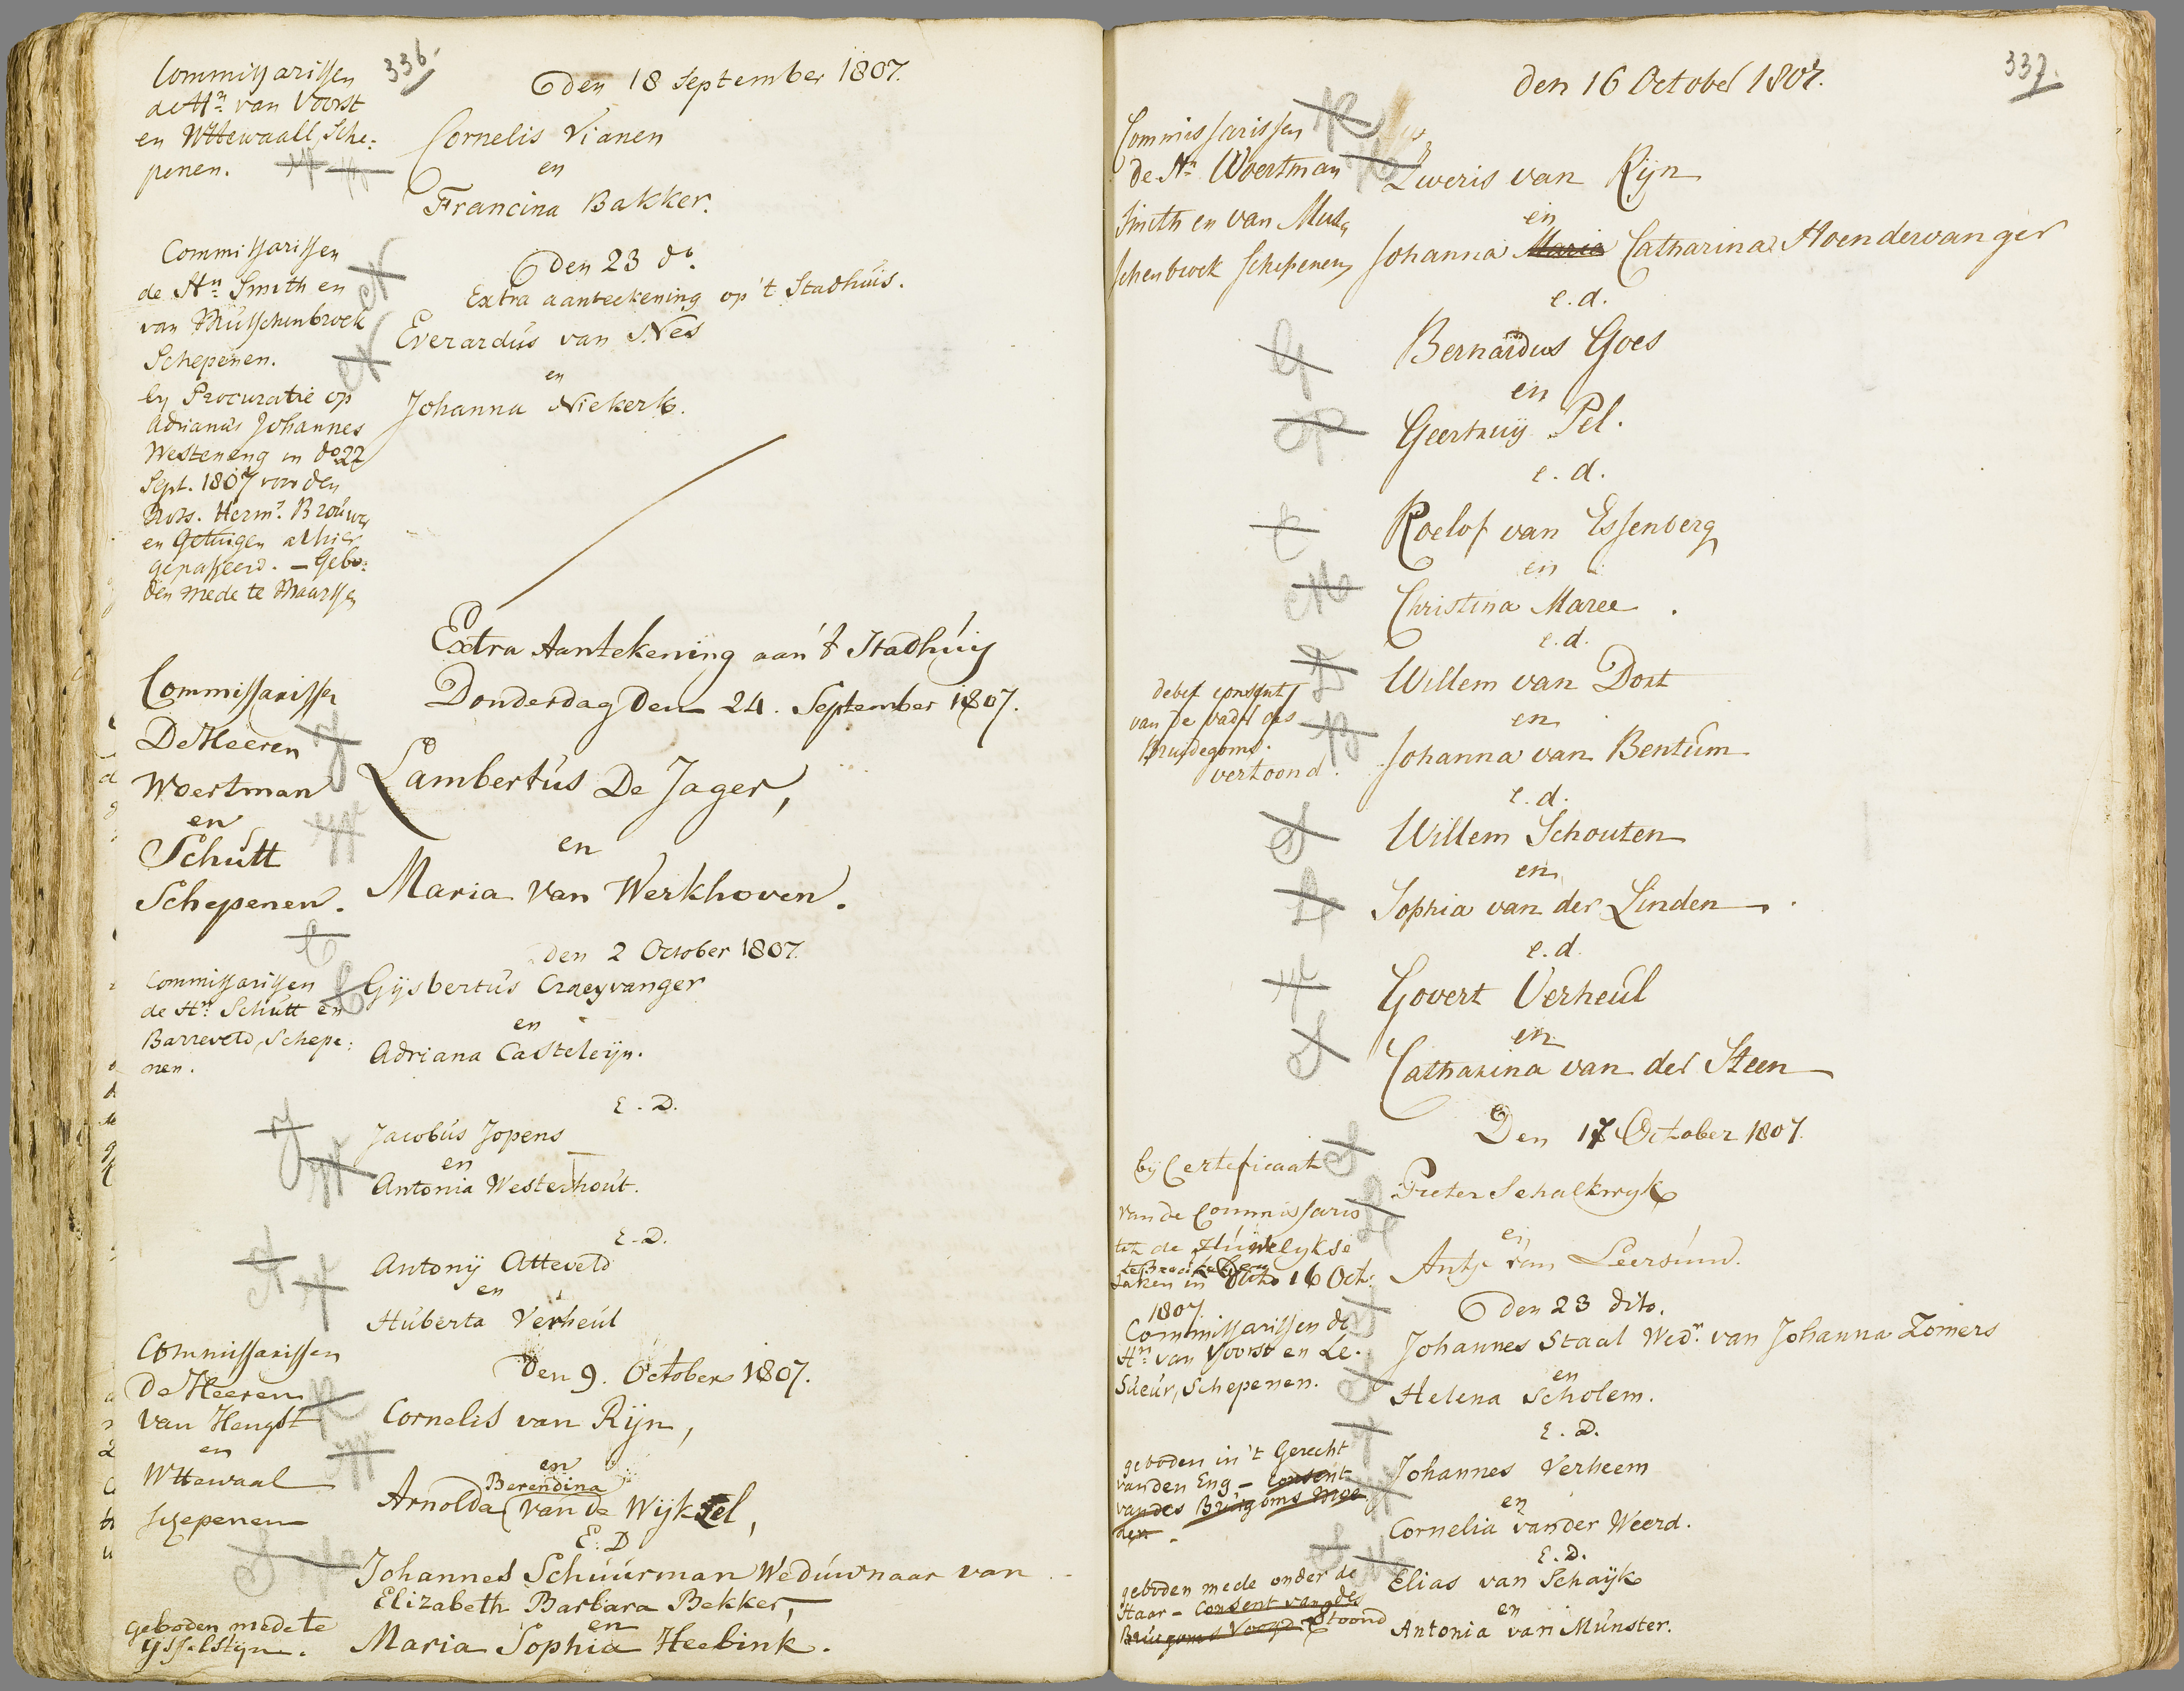 336.
Commissarissen
de Hn. van Voorst
en Wttewaall Sche:
penen.
den 18 September 1807.
Cornelis Vianen
en
Francina Bakker.
Commissarissen
de Hn. Smith en
van Musschenbroek
Schepenen.
by Procuratie op
Adrianus Johannes
Westeneng in do. 22
Sept. 1807 voor den
Nots. Herms. Brouwer
en Getuigen alhier
gepasseerd. - Gebo:
den mede te Maarssen
den 23 do.
Extra aanteekening op 't Stadhuis.
Everardus van Nes
en
Johanna Niekerk.
Extra Aantekening aan 't Stadhuis
Donderdag Den 24. September 1807.
Commissarissen
De Heeren
Woertman
en
Schutt
Schepenen.
Lambertus De Jager,
en
Maria van Werkhoven.
den 2 October 1807.
Commissarissen
de Hn. Schutt en
Barreveld, Schepe:
nen.
Gijsbertus Craeyvanger
en
Adriana Casteleijn.
E. D.
Jacobus Jopens
en
Antonia Westerhout.
E. D.
Antonij Atteveld
en
Huberta Verheul
Commissarissen
De Heeren
van Hengst
en
Wttewaal
schepenen
Den 9. October 1807.
Cornelis van Rijn,
en
Berendina
Arnolda van de Wijkzel,
E: D
Johannes Schuurman Weduwnaar van
Elizabeth Barbara Bekker,
en
Maria Sophia Heebink.
geboden mede te
ijsselstijn.
337.
den 16 October 1807.
Commissarissen
de Hn. Woertman
Smith en van Mus
schenbroek Schepenen
Zweris van Rijn
en
Johanna Maria Catharina Hoendervanger
e. d.
Bernardus Goes
en
Geertruij Pel.
e. d.
Roelof van Essenberg
en
Christina Maree.
e. d.
debet consent
van de vader des
Bruidegoms.
vertoond.
Willem van Dort
en
Johanna van Bentum
e. d.
Willem Schouten
en
Sophia van der Linden.
e. d.
Govert Verheul
en
Catharina van der Steen
Den 17 October 1807.
bij Certeficaat
van de Commissaris
tot de Huwelykse
zaken in dato 16 Oct.
1807
Pieter Schalkwyk
en
Antje van Leersum.
den 23 dito.
Commissarissen de
Hn. van Voorst en Le.
Sueur, Schepenen.
Johannes Staal Wedr. van Johanna Zomers
en
Helena Scholem.
E. D.
geboden in 't Gerecht
van den Eng - Consent
van des Bruigoms Moe
der.
Johannes Verheem
en
Cornelia van der Weerd.
E. D.
geboden mede onder de
Haar - Consent van des
Bruigoms Voogd Vertoond
Elias van Schaijk
en
Antonia van Munster.